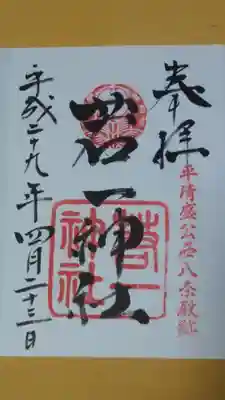 奉拝
平清盛公西八条殿趾
若一神社
若一神社
平成二十九年四月二十三日